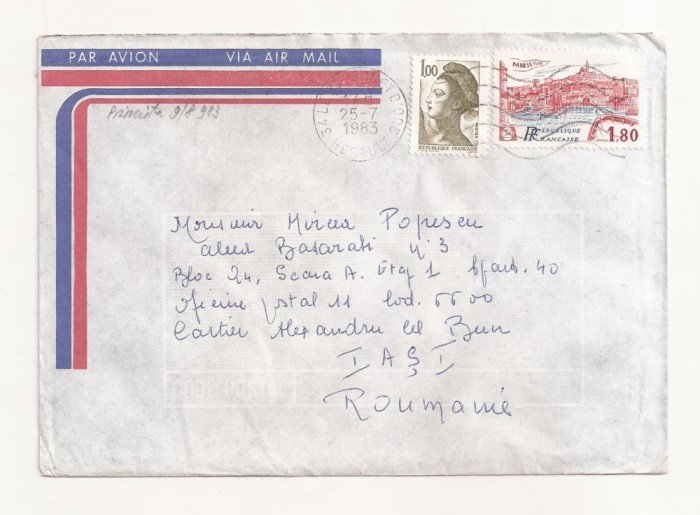 PAR AVION VIA AIR MAIL
Primită 9/8 983
25-7
1983
1,00
REPUBLIQUE FRANÇAISE
MARSEILLE
RF REPUBLIQUE
FRANCAISE 1,80
Monsieur Mircea Popescu
aleea Basarabi n° 3
Bloc 24, Scara A. Etaj 1 apart. 40
oficiul postal 11 Cod. 6600
Cartier Alexandru cel Bun
IAŞI
Roumanie